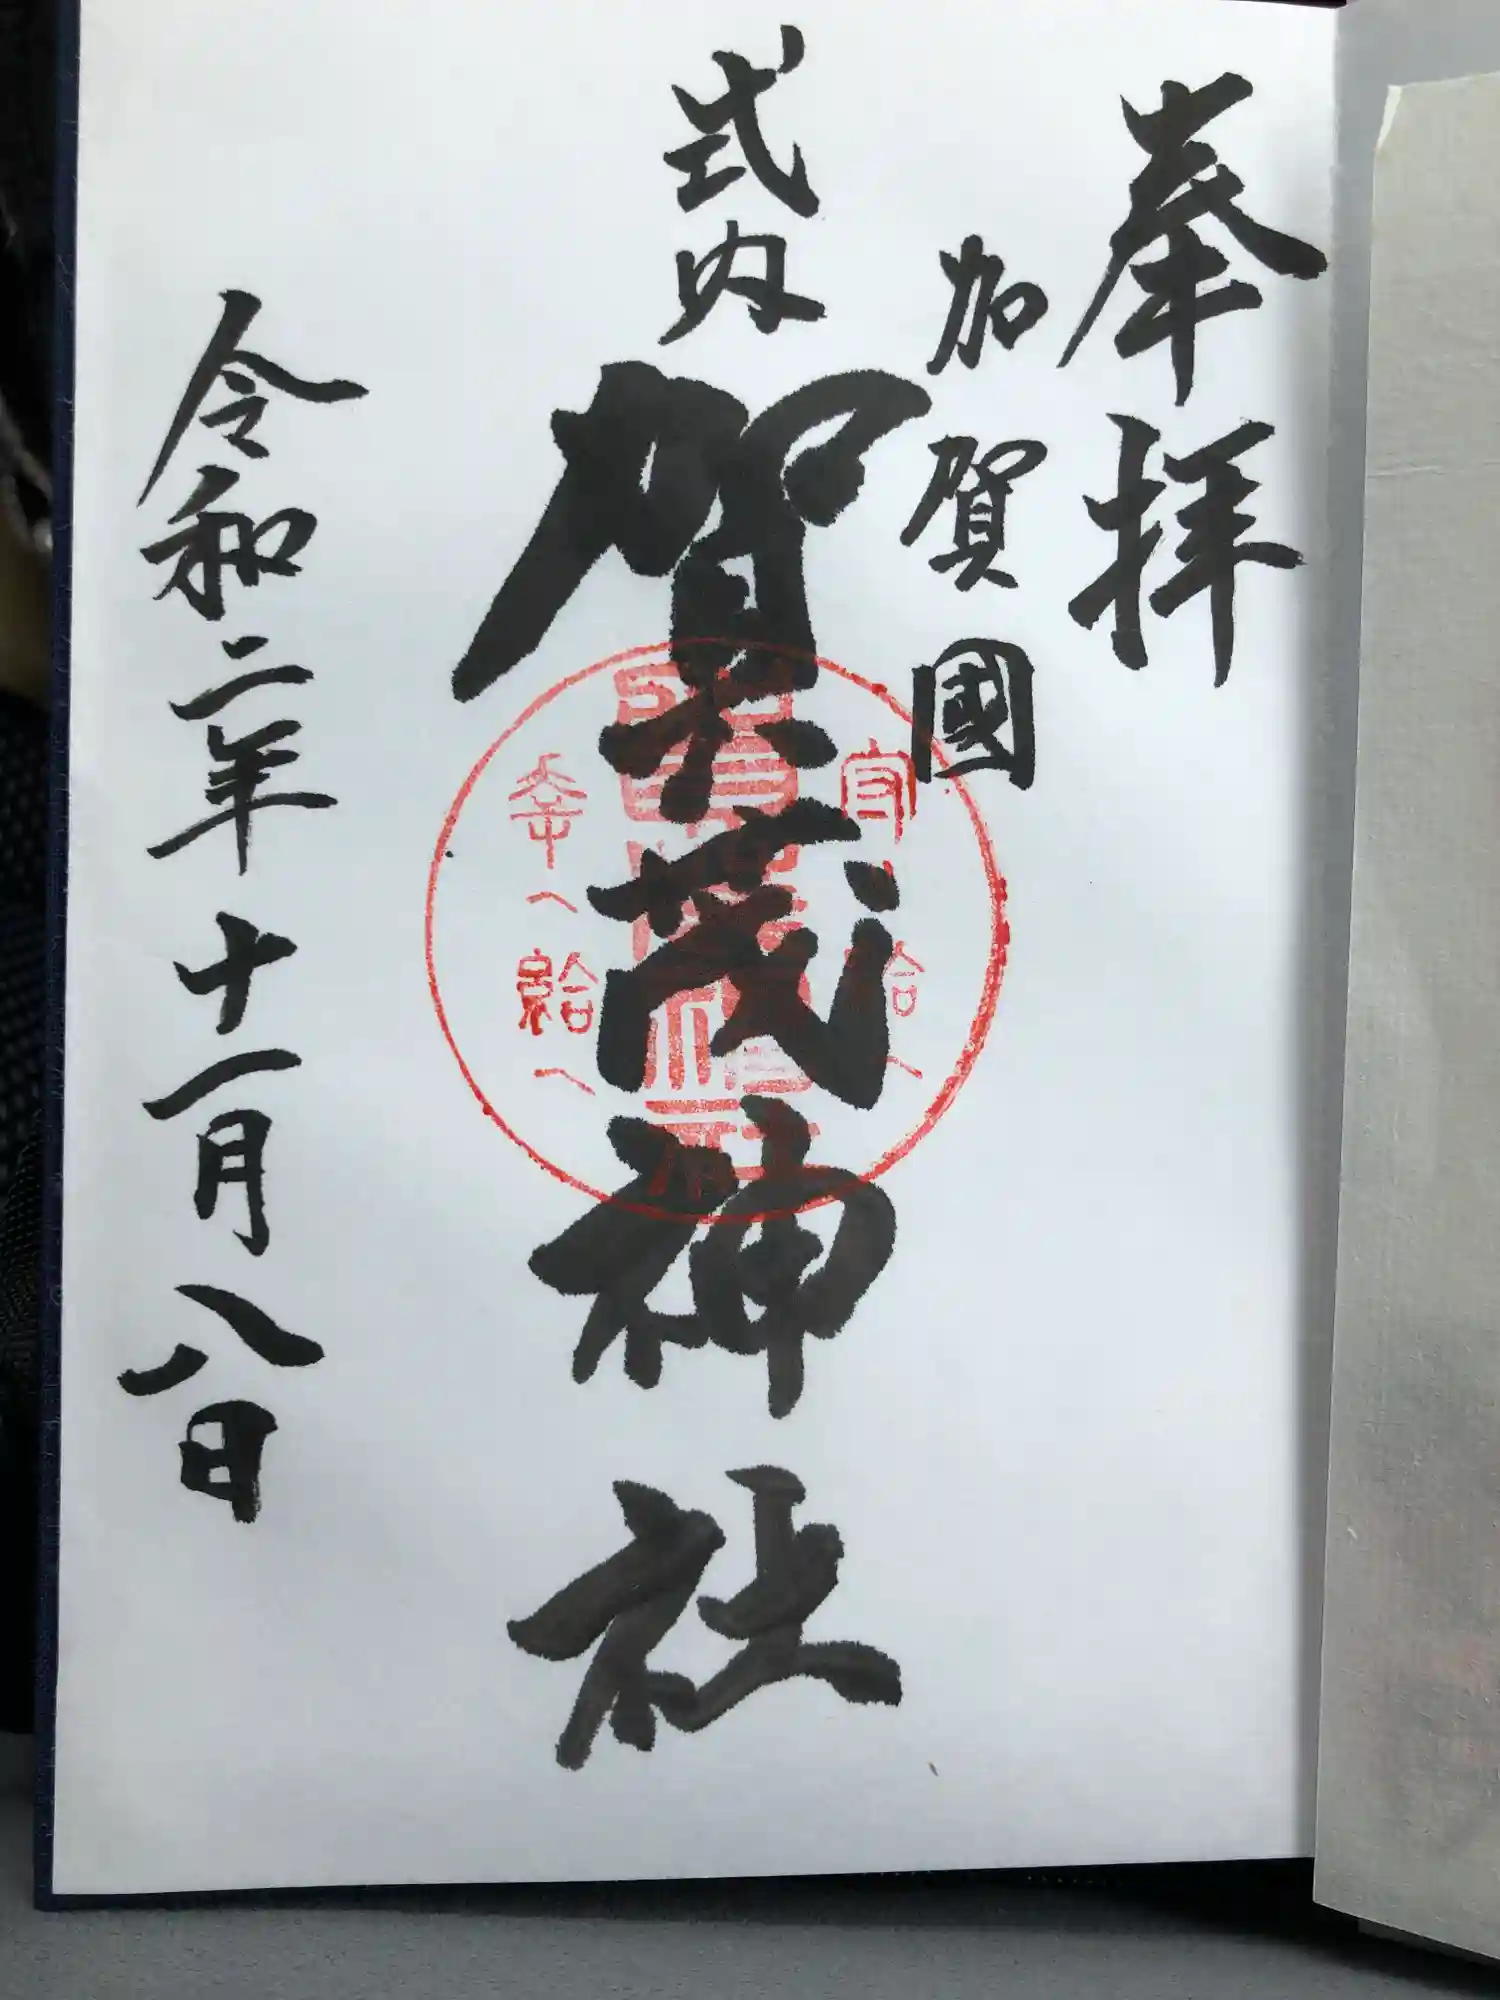 奉拝
加賀國
式内
賀茂神社
守給へ
幸へ給へ
令和二年十一月八日